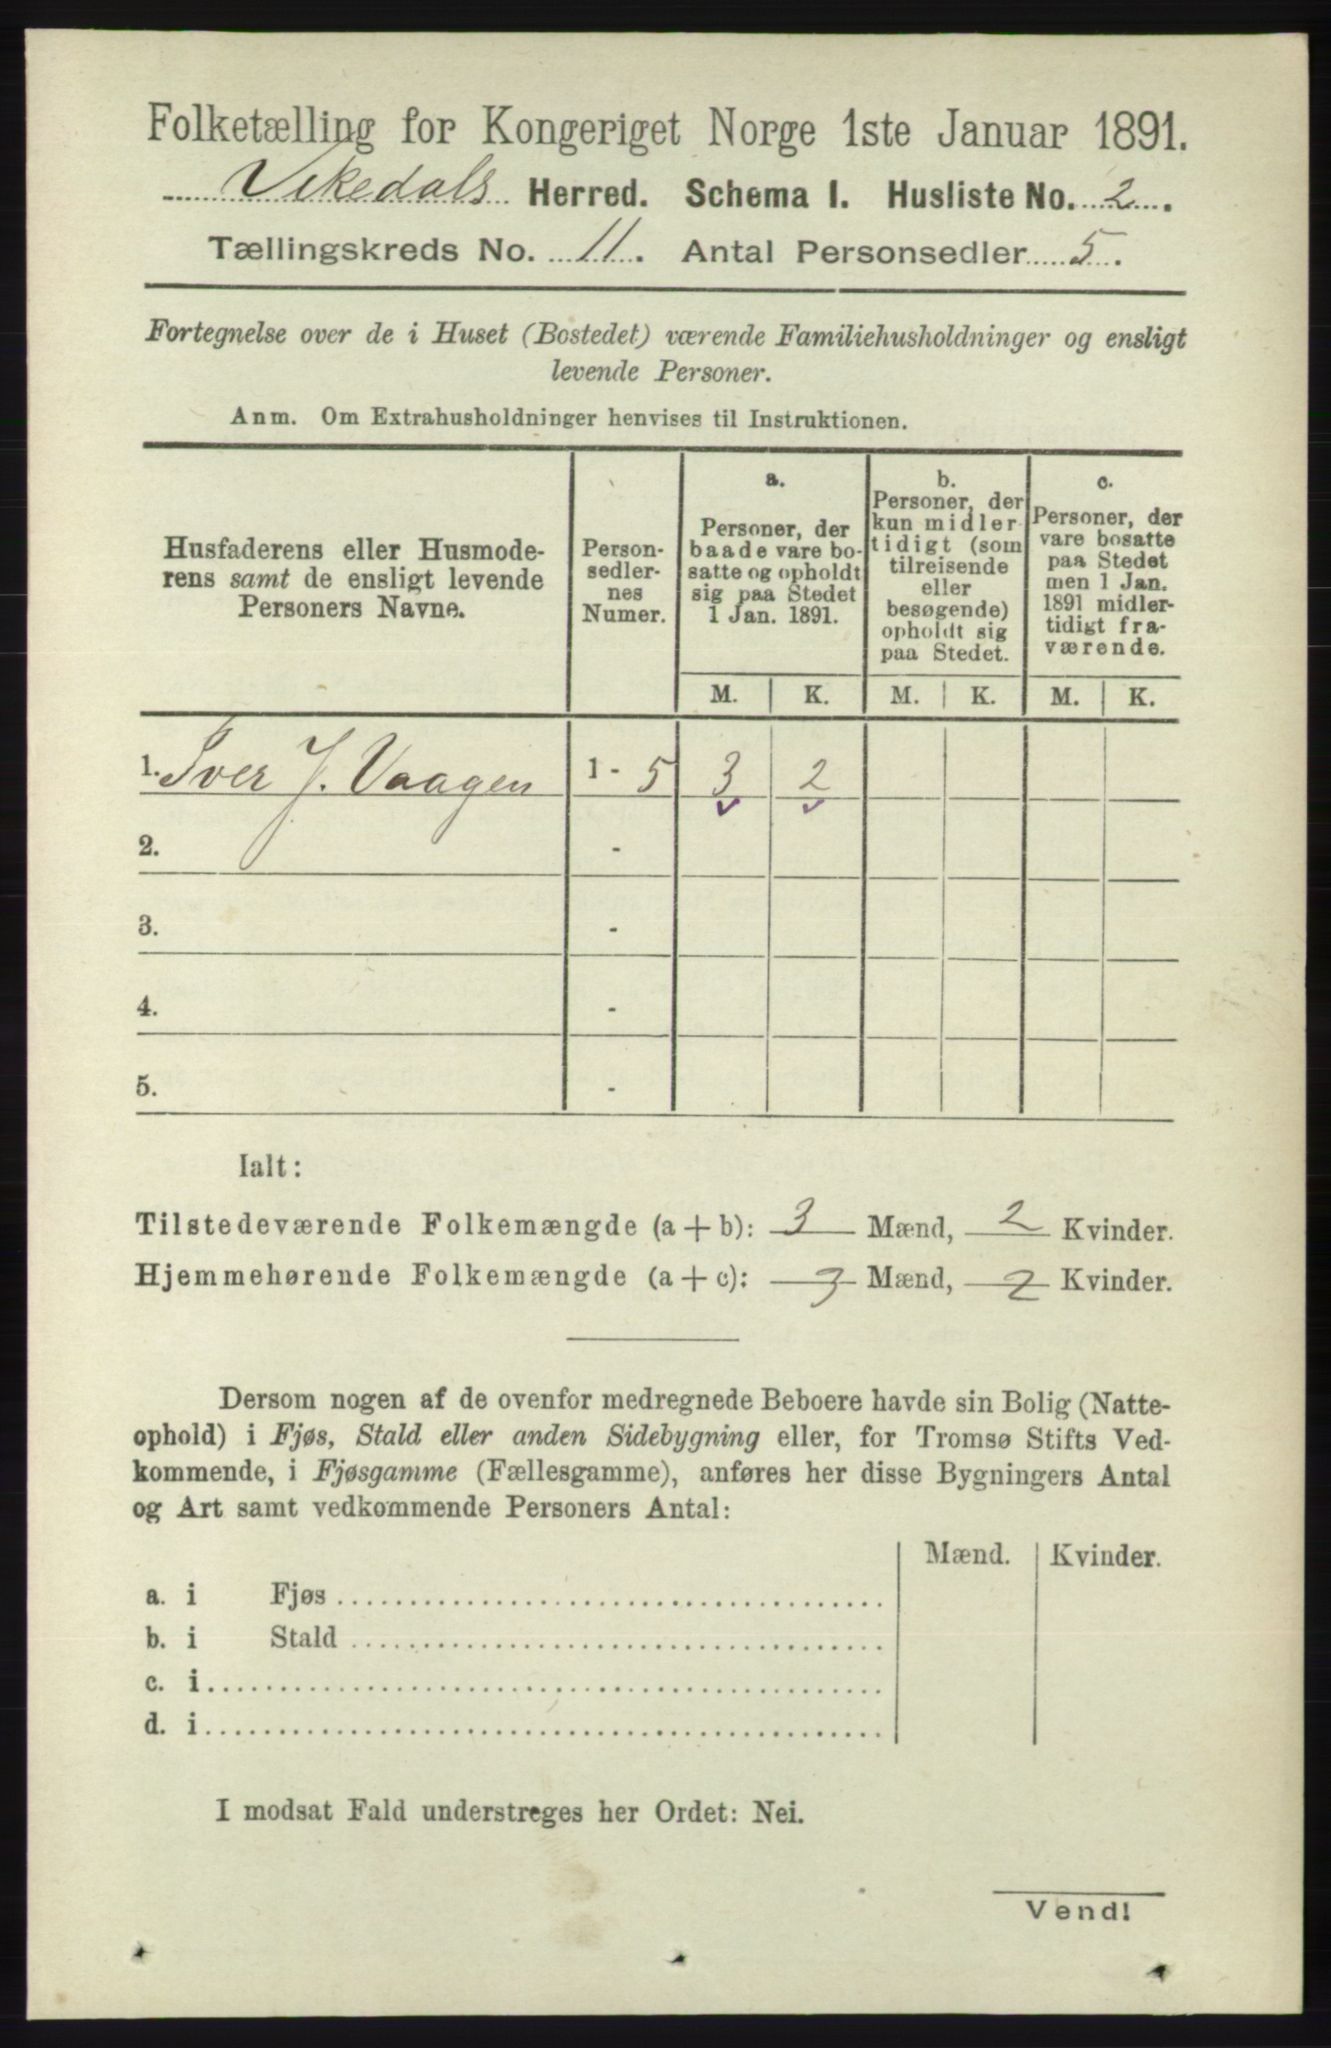 Folketælling for Kongeriget Norge 1ste Januar 1891.
Vikedals Herred. Schema I. Husliste No. 2.
Tællingskreds No. 11. Antal Personsedler 5.
Fortegnelse over de i Huset (Bostedet) værende Familiehusholdninger og ensligt
levende Personer.
Anm. Om Extrahusholdninger henvises til Instruktionen.
Husfaderens eller Husmode-
rens samt de ensligt levende
Personers Navne.
Person-
sedler-
nes
Numer.
a.
Personer, der
baade vare bo-
satte og opholdt
sig paa Stedet
1 Jan. 1891.
b.
Personer, der
kun midler-
tidigt (som
tilreisende
eller
besøgende)
opholdt sig
paa Stedet.
c.
Personer, der
vare bosatte
paa Stedet
men 1 Jan.
1891 midler-
tidigt fra-
værende.
M. K. M. K. M. K.
1. Iver J. Vaagen 1 - 5 3 2
2. -
3. -
4. -
5. -
Ialt:
Tilstedeværende Folkemængde (a + b): 3 Mænd, 2 Kvinder.
Hjemmehørende Folkemængde (a + c): 3 Mænd, 2 Kvinder.
Dersom nogen af de ovenfor medregnede Beboere havde sin Bolig (Natte-
ophold) i Fjøs, Stald eller anden Sidebygning eller, for Tromsø Stifts Ved-
kommende, i Fjøsgamme (Fællesgamme), anføres her disse Bygningers Antal
og Art samt vedkommende Personers Antal:
Mænd. Kvinder.
a. i Fjøs
b. i Stald
c. i
d. i
I modsat Fald understreges her Ordet: Nei.
Vend!